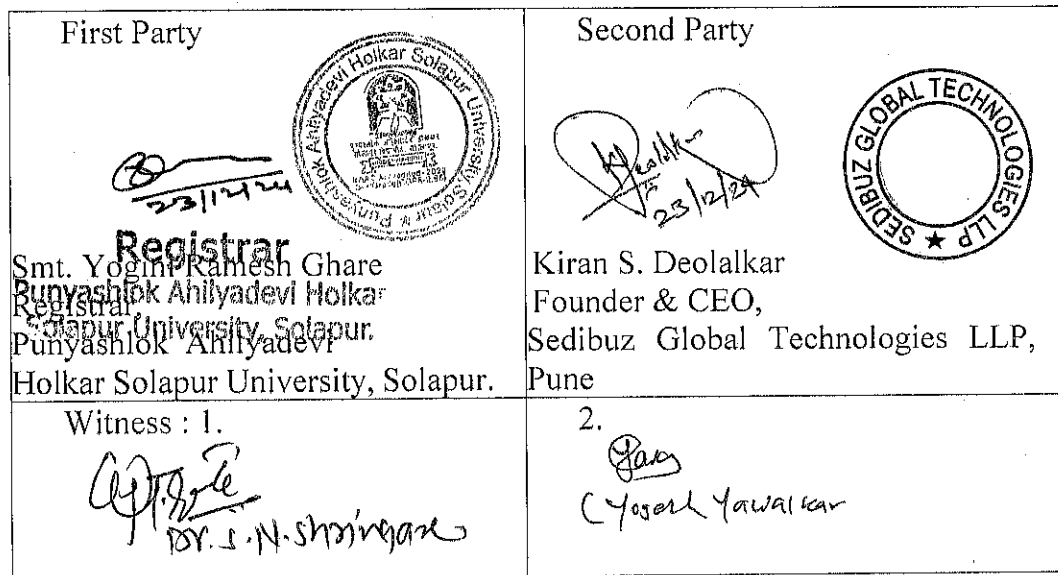 First Party
Punyashlok Ahilyadevi Holkar Solapur University, Solapur
23/12/24
Registrar
Punyashlok Ahilyadevi Holkar
Solapur University, Solapur.
Smt. Yogini Ramesh Ghare
Registrar,
Punyashlok Ahilyadevi
Holkar Solapur University, Solapur.
Second Party
Deolalkar
23/12/24
SEDIBUZ GLOBAL TECHNOLOGIES LLP ★
Kiran S. Deolalkar
Founder & CEO,
Sedibuz Global Technologies LLP,
Pune
Witness : 1.
Dr. S. N. Shringare
2.
(Yogesh Yawalkar